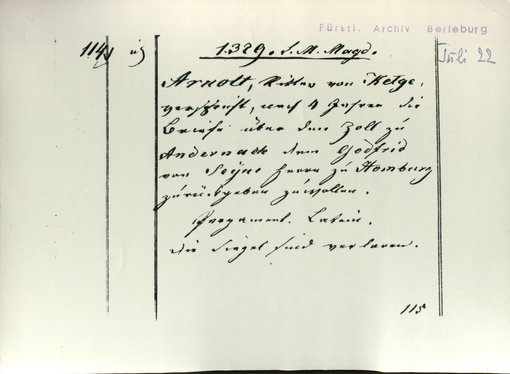 Fürstl. Archiv Berleburg
114
1329. S. M. Magd.
Juli 22
Arnolt, Ritter von Ketge,
verspricht, nach 4 Jahren die
Briefe über den Zoll zu
Andernach dem Godfrid
von Seyne Herrn zu Homburg
zurückgeben zu wollen.
Pergament. Latein.
Die Siegel sind verloren.
115